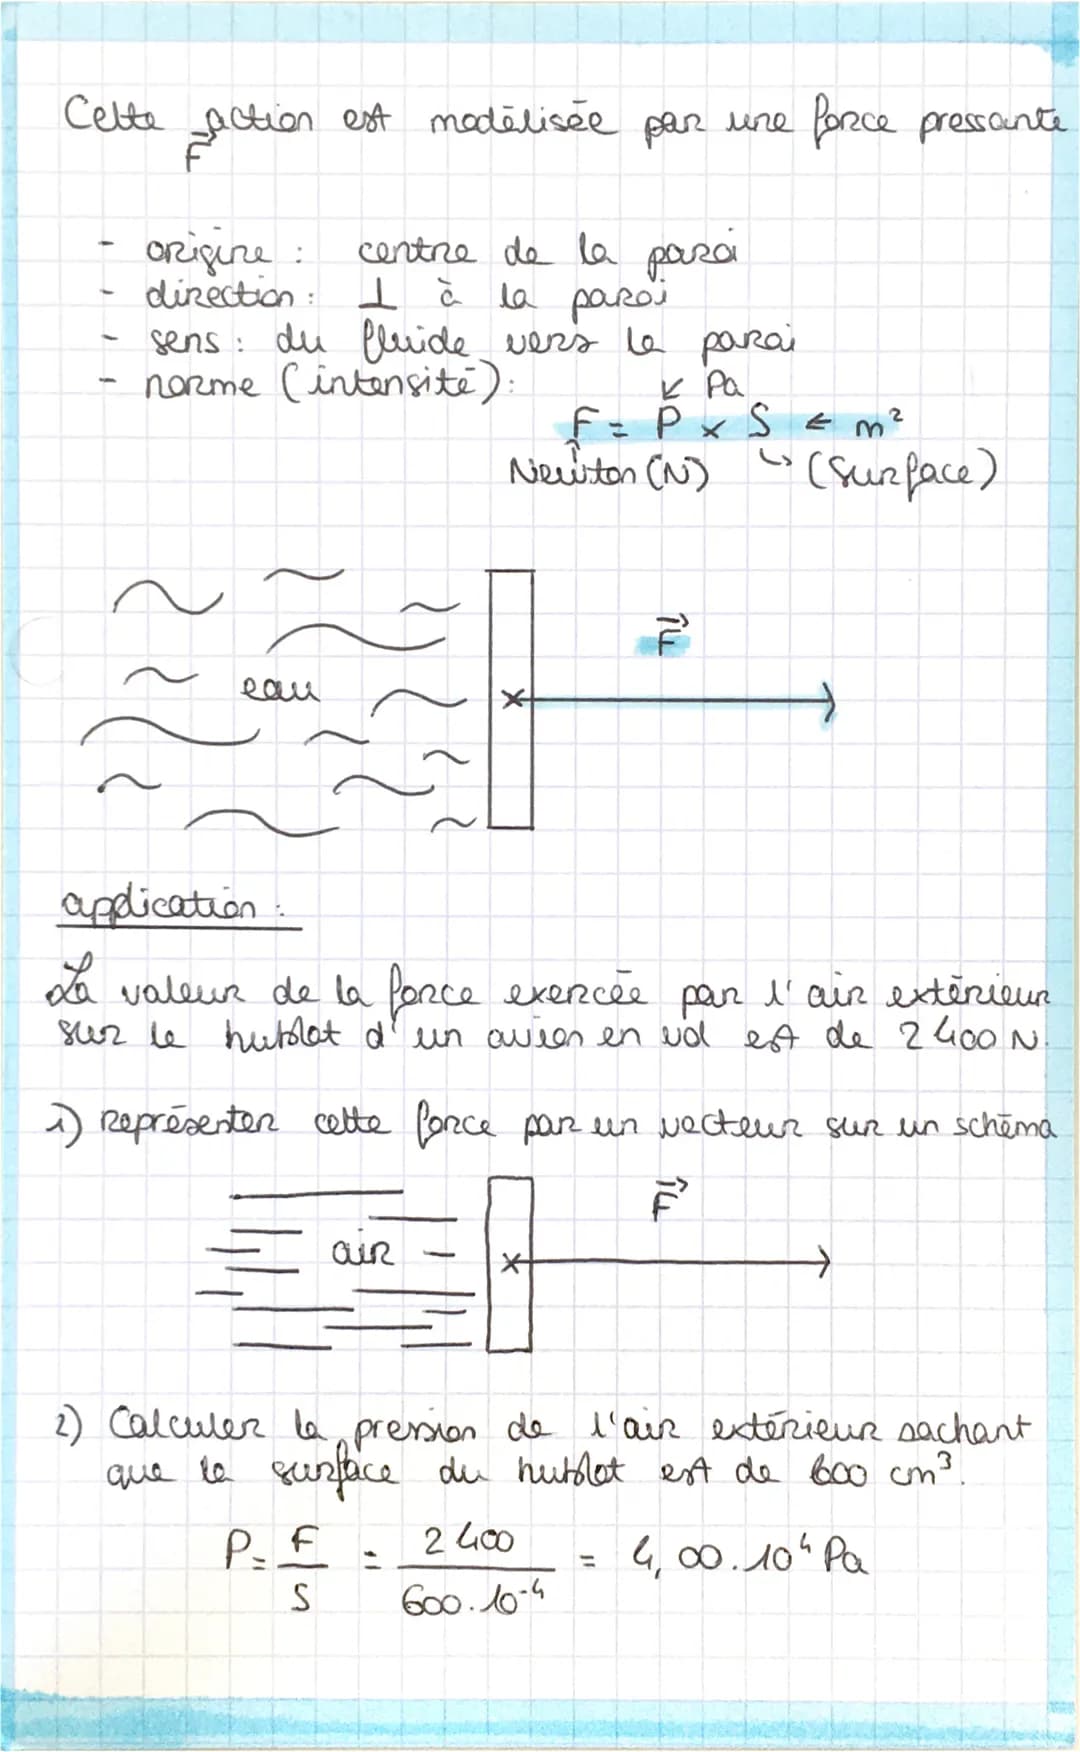 Cette action est modélisée par une force pressante
F⃗
- origine : centre de la paroi
- direction : ⊥ à la paroi
- sens : du fluide vers la paroi
- norme (intensité) :
↙ Pa
F = P × S ← m²
Newton (N) ↳ (Surface)
F⃗
eau
application :
La valeur de la force exercée par l'air extérieur
sur le hublot d'un avion en vol est de 2400 N.
1) Représenter cette force par un vecteur sur un schéma
F⃗
air
2) Calculer la pression de l'air extérieur sachant
que la surface du hublot est de 600 cm³.
P = F/S = 2400/600.10⁻⁴ = 4,00.10⁴ Pa